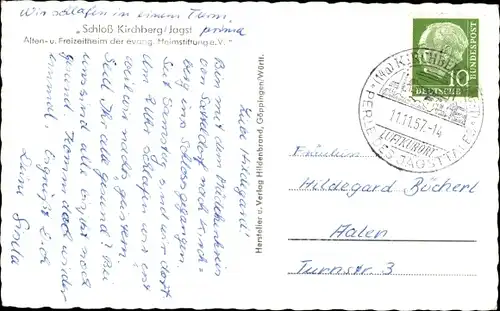 Wir schlafen in einem Turm, prima
"Schloß Kirchberg/Jagst
Alten- u. Freizeitheim der evang. Heimstiftung e.V."
Liebe Hildegard!
Bin mit dem Mädchenkreis
von Satteldorf nach Kirch-
berg ins Schloss gegangen.
Seit Samstag sind wir dort
am Luft schlafen wir erst
noch
gestern.
Seid Ihr alle gesund? Bei
uns sind alle
gesund. Komm doch wieder
einmal, Es grüßt Euch
Deine
Hersteller u. Verlag Hildenbrand, Göppingen/Württ.
10
DEUTSCHE
BUNDESPOST
KIRCHBERG
11.11.57-14
LUFTKURORT
PERLE DES JAGSTTALES
Fräulein
Hildegard Bücherl
Aalen
Turnstr. 3